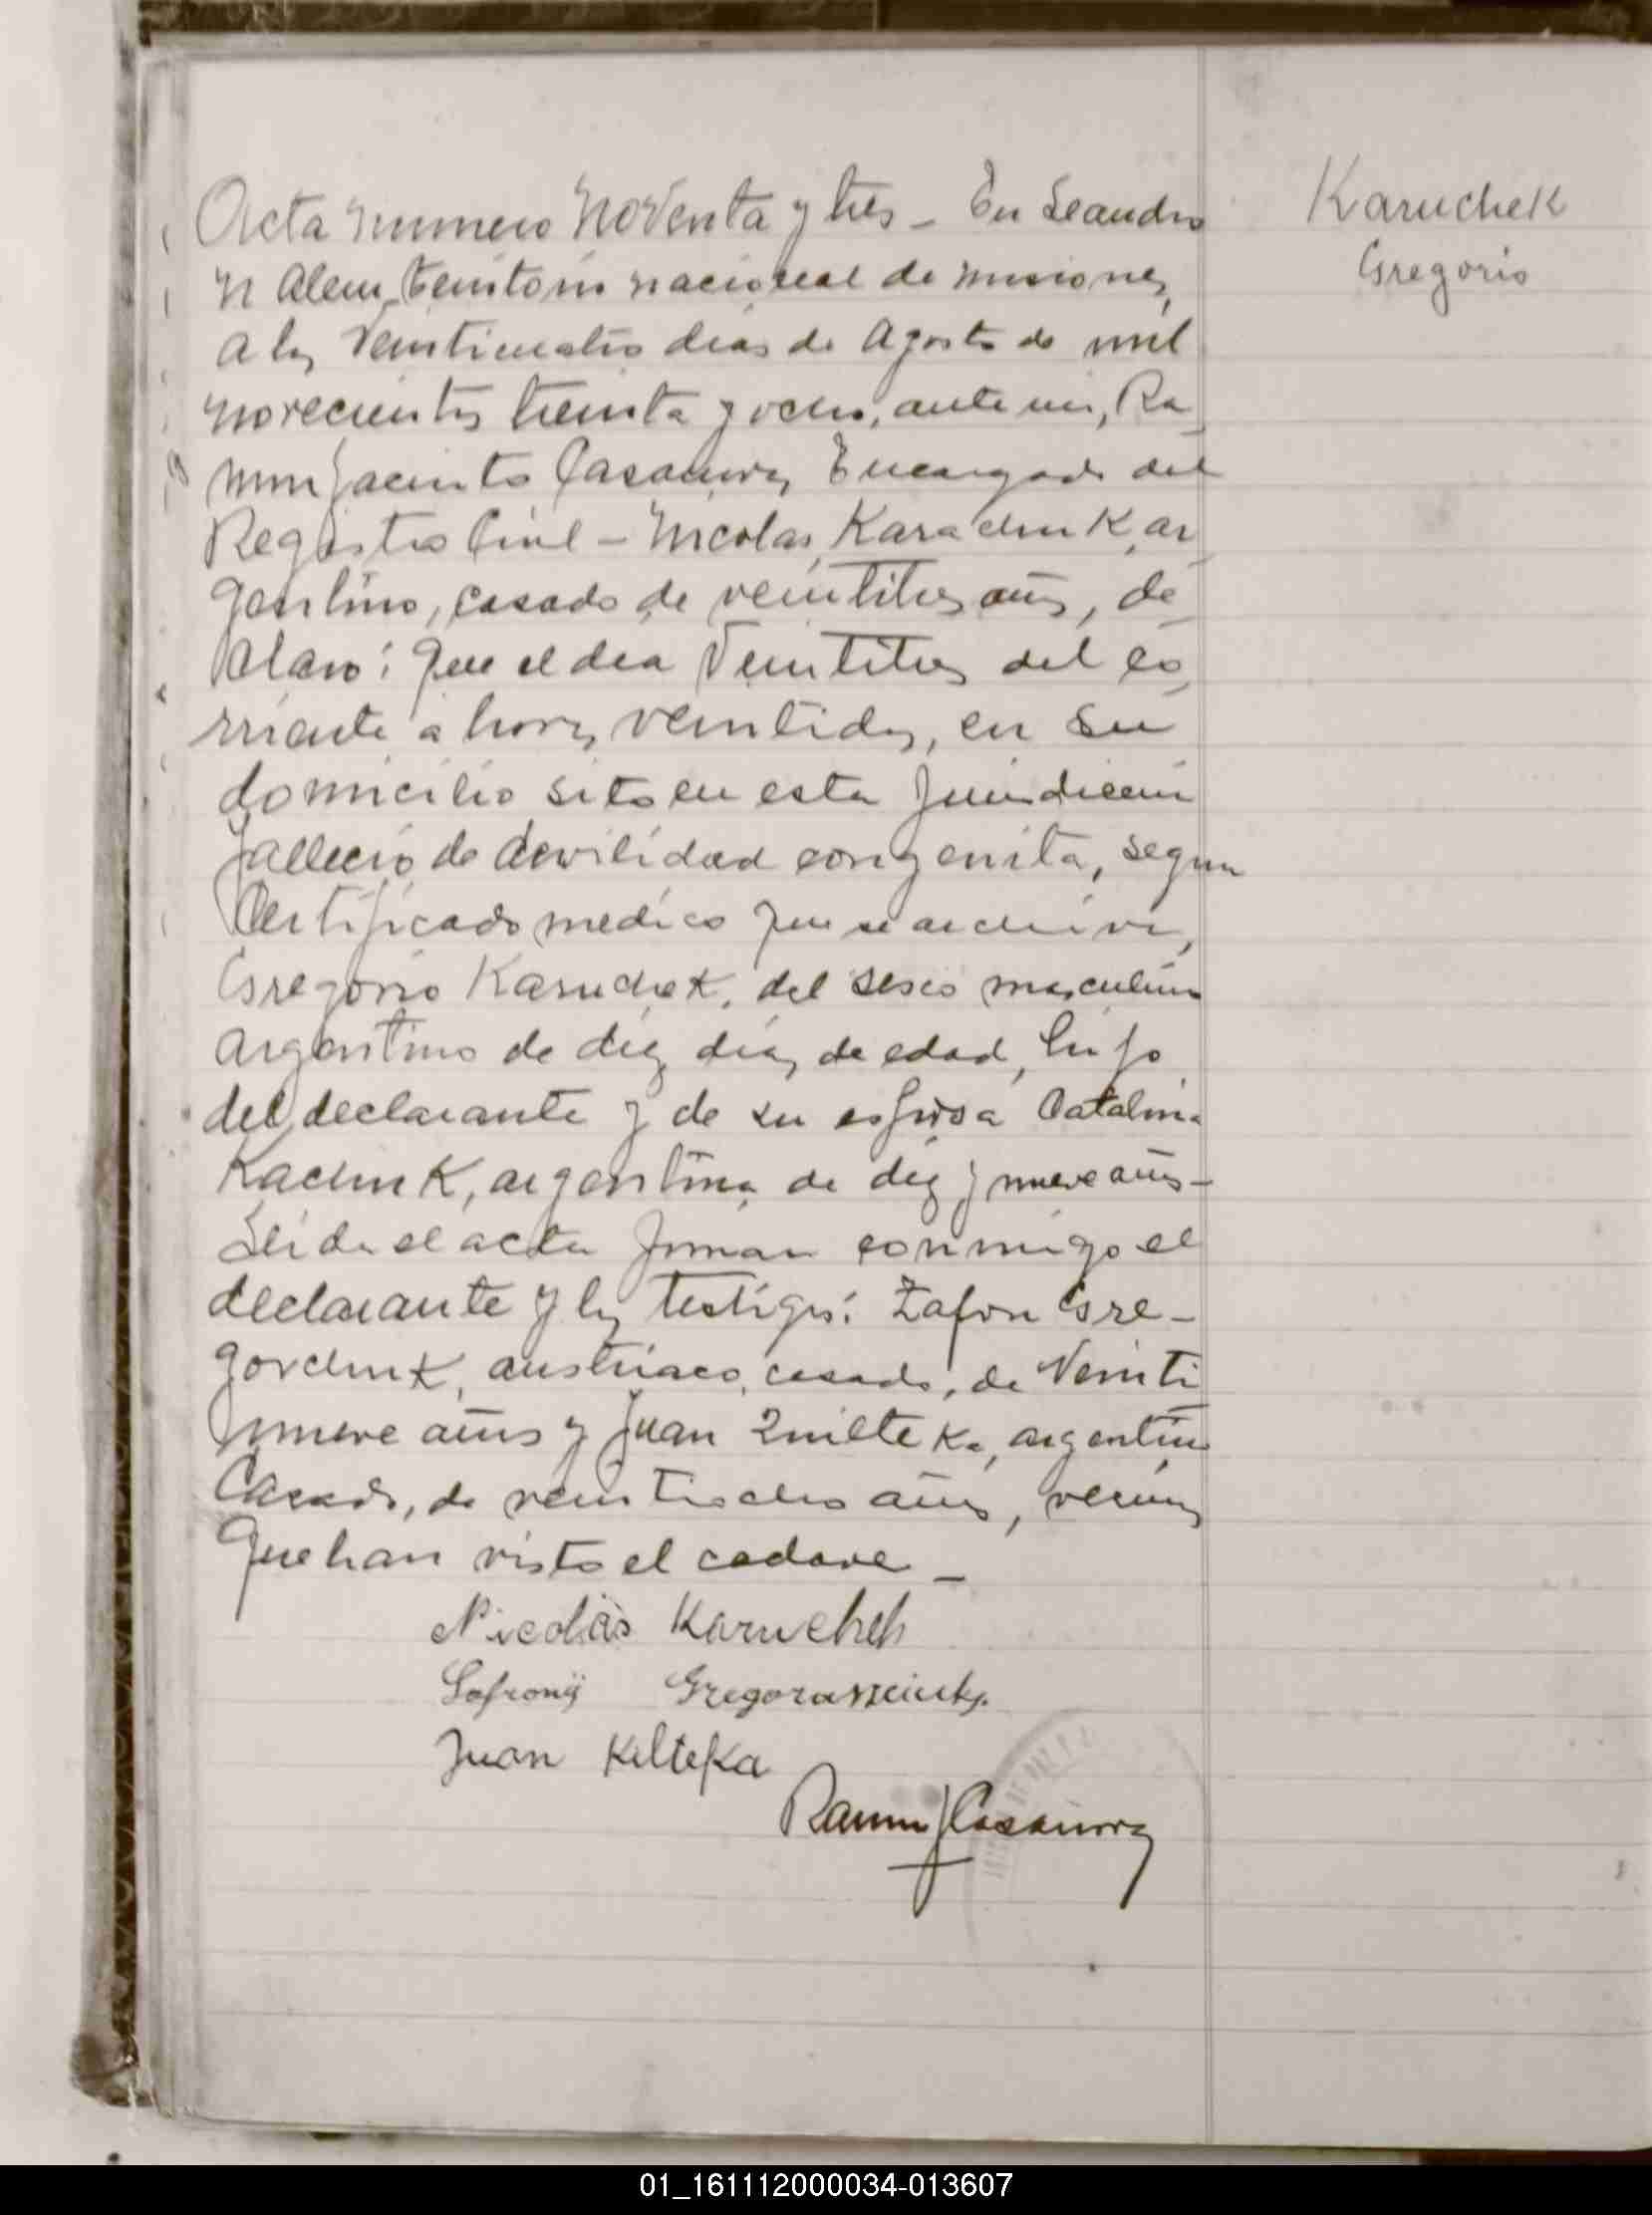 Karuchek
Gregorio
Acta numero Noventa y tres - En Leandro
N Alem, territorio nacional de misiones,
a los veinticuatro dias de Agosto de mil
novecientos treinta y ocho, ante mi, Ra
mon Jacinto Casanova, Encargado del
Registro Civil - Nicolas Karachuk, ar
gentino, casado de veintitres años, de
claro: que el dia Veintitres del co
rriente a horas veintidos, en su
domicilio sito en esta jurisdiccion
fallecio de devilidad congenita, segun
Certificado medico que se archiva,
Gregorio Karuchek, del sexo masculino
argentino de diez dias de edad, hijo
del declarante y de su esposa Catalina
Kachuk, argentina de diez y nueve años -
Leida el acta firman conmigo el
declarante y los testigos: Zafon Gre-
gorchuk, austriaco, casado, de Veinti
nueve años y Juan Quilteka, argentino
Casado, de veintiocho años, vecinos
que han visto el cadave -
Nicolás Karucheh
Sofronij
Juan Kilteka
Ramon J Casanova
01_161112000034-013607